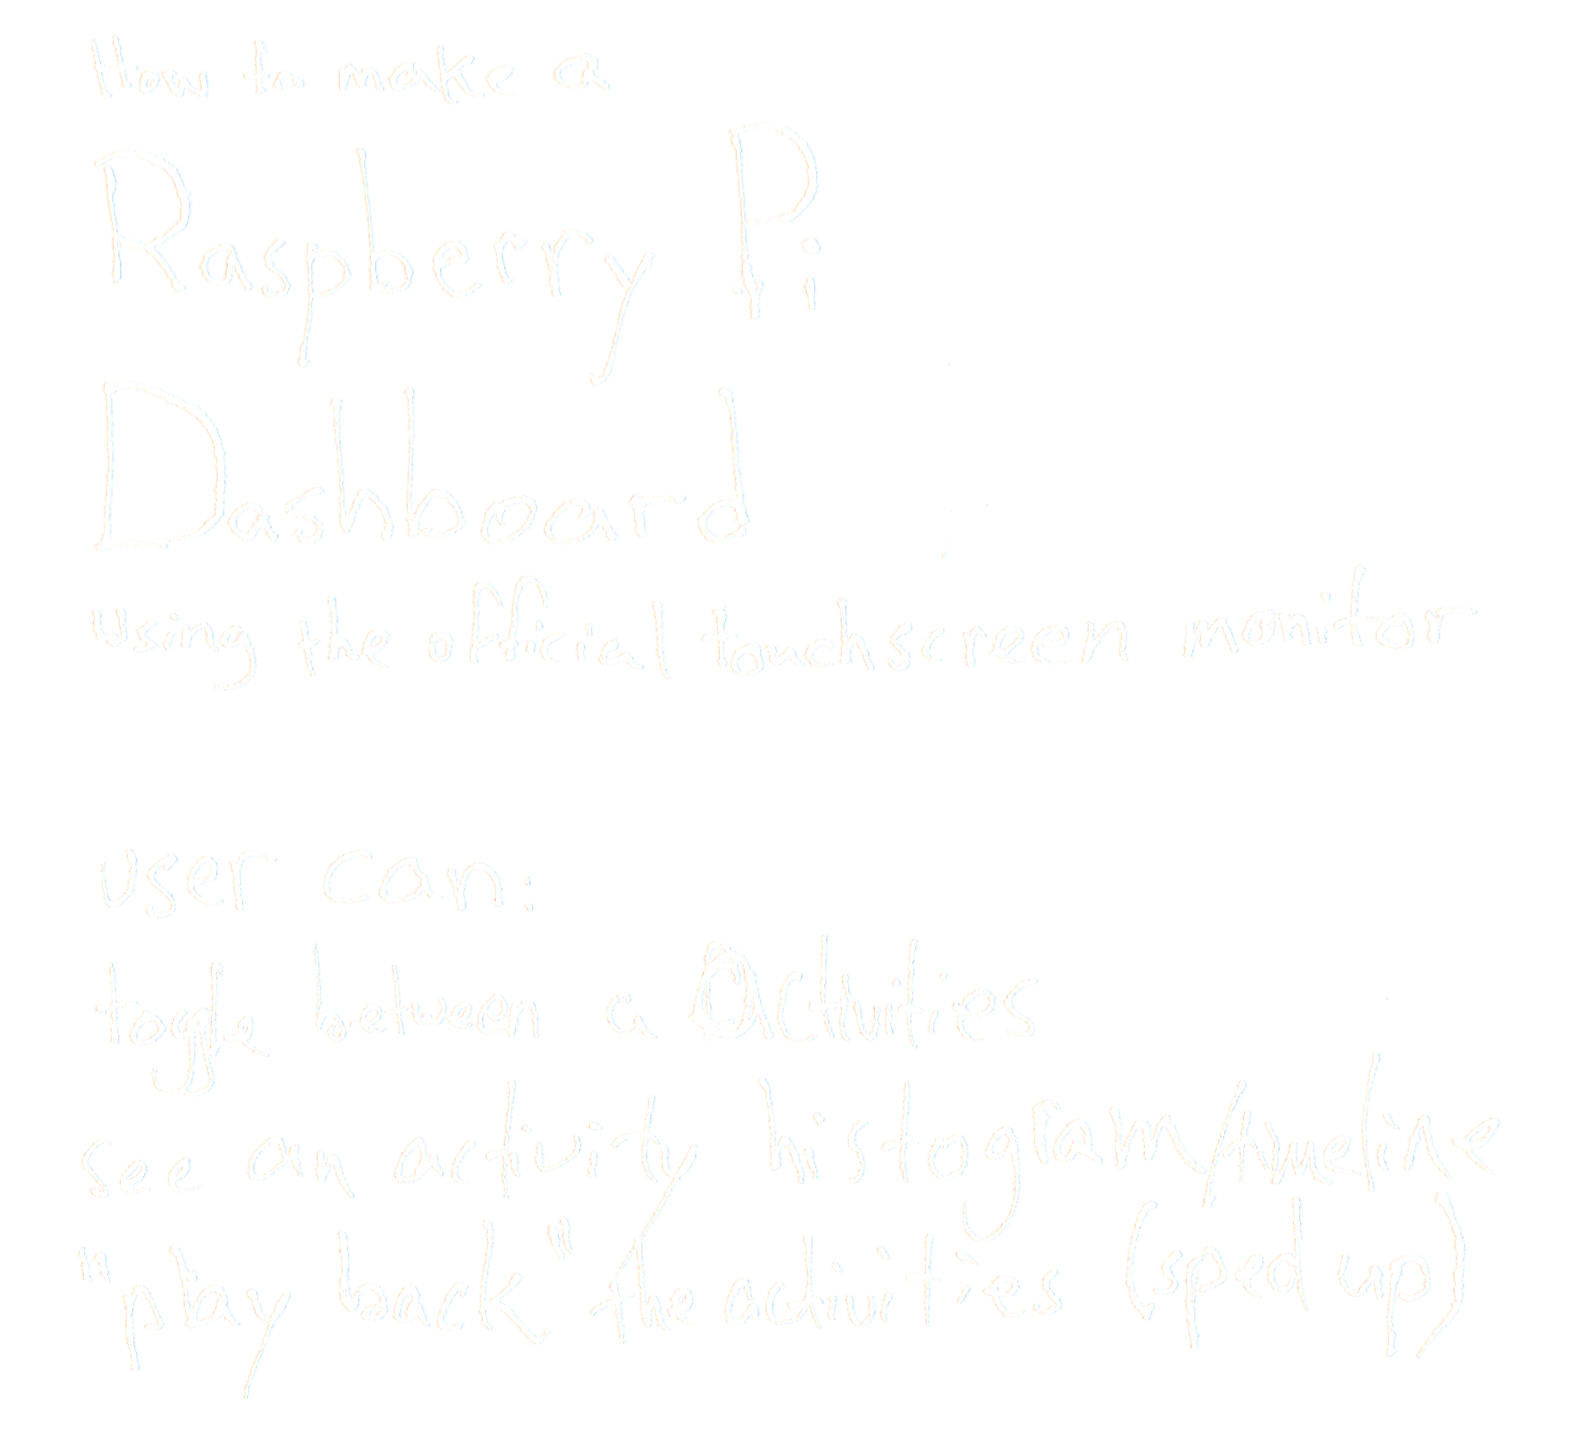 How to make a
Raspberry Pi
Dashboard
using the official touchscreen monitor
user can:
toggle between a activities
see an activity histogram/timeline
"play back" the activities (sped up)